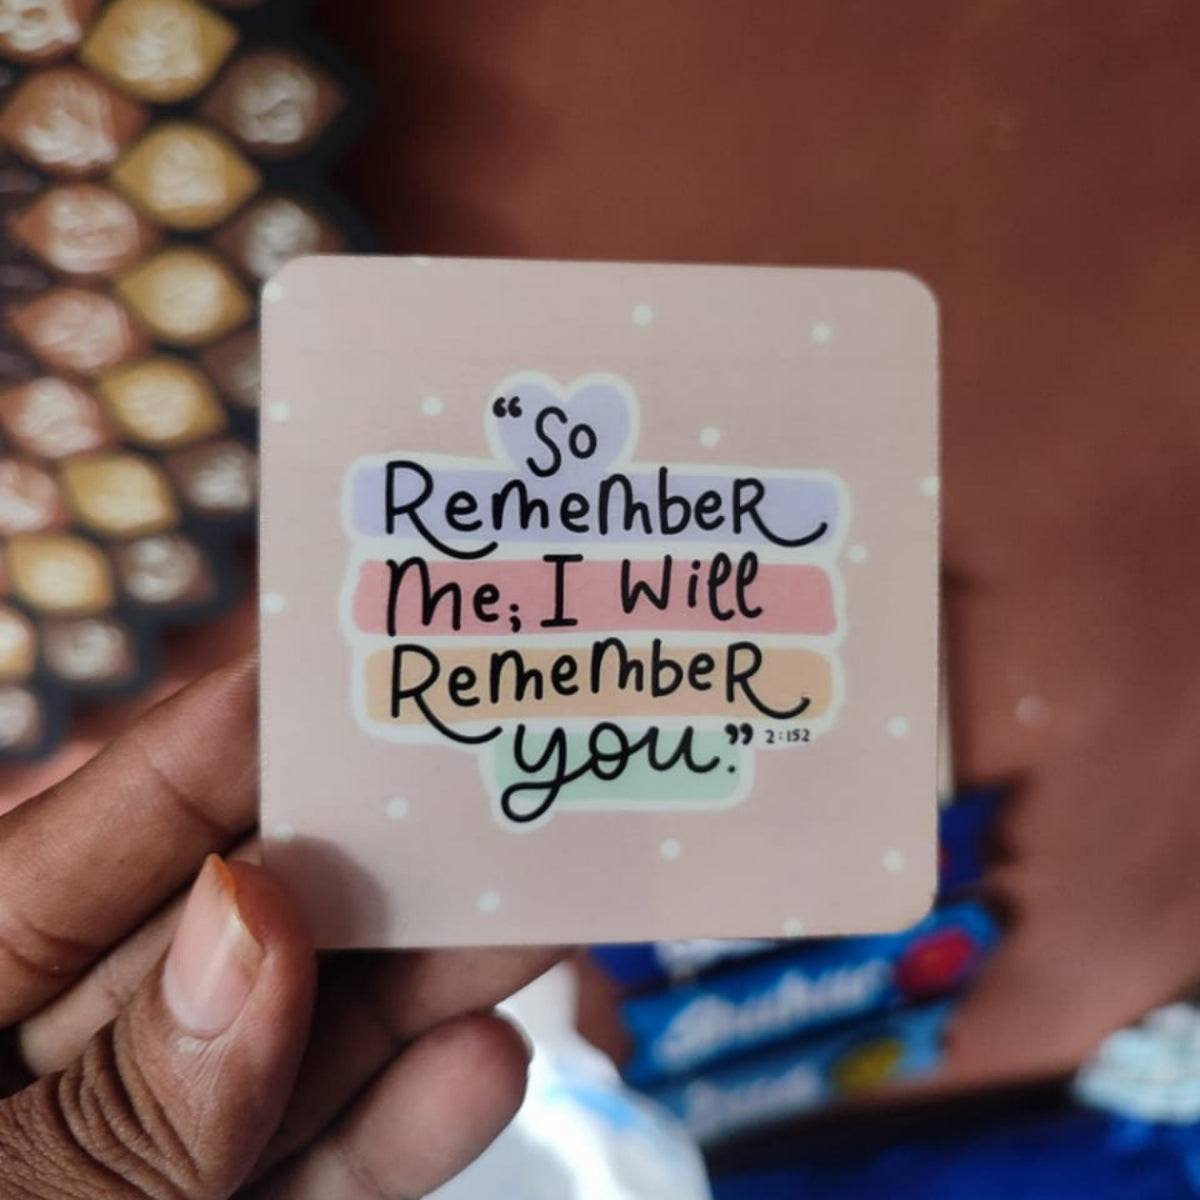 “So
Remember
me; I will
Remember
you.” 2:152